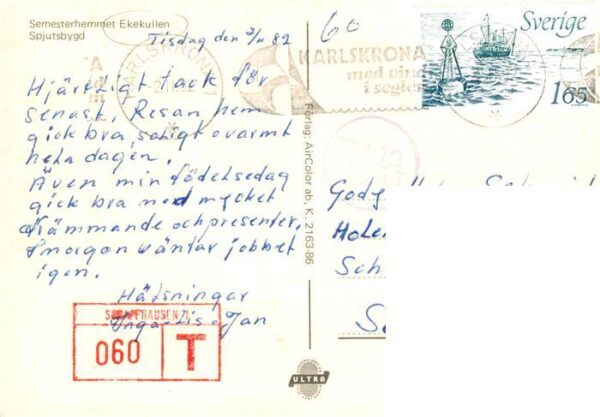 Semesterhemmet Ekekullen
Spjutsbygd
Tisdag den 2/11 82
Hjärtligt tack för
senast. Resan hem
gick bra, soligt o varmt
hela dagen.
Även min födelsedag
gick bra med mycket
främmande och presenter.
I morgon väntar jobbet
igen.
Hälsningar
Inga-Lis o Jan
SCHAFFHAUSEN 1
060 T
Förlag: AirColor ab, K, 2163-86
ULTRA
60
KARLSKRONA 1
KARLSKRONA
med vind
i segler
Sverige
165
Godg
Hole
Sch
S